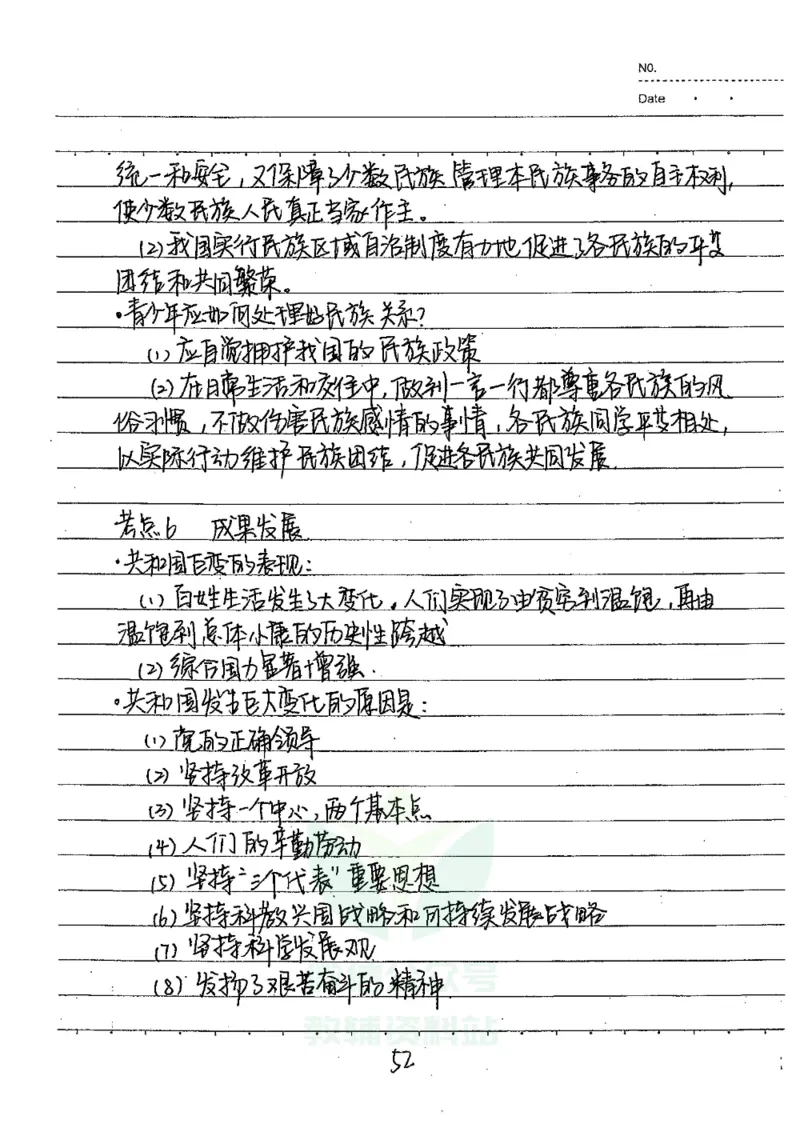 NO.
Date
统一和安全，又保障了少数民族管理本民族事务的自主权利，
使少数民族人民真正当家作主。
(2)我国实行民族区域自治制度有力地促进了各民族的平等
团结和共同繁荣。
·青少年应如何处理好民族关系?
(1)应自觉拥护我国的民族政策
(2)在日常生活和交往中，做到一言一行都尊重各民族的风
俗习惯，不做伤害民族感情的事情，各民族同学平等相处，
以实际行动维护民族团结，促进各民族共同发展.
考点6 成果发展
·共和国巨变的表现：
(1)百姓生活发生了大变化。人们实现了由贫穷到温饱，再由
温饱到总体小康的历史性跨越
(2)综合国力显著增强.
·共和国发生巨大变化的原因是：
(1)党的正确领导
(2)坚持改革开放
(3)坚持一个中心，两个基本点
(4)人们的辛勤劳动
(5)坚持“三个代表”重要思想
(6)坚持科教兴国战略和可持续发展战略
(7)坚持科学发展观
(8)发扬了艰苦奋斗的精神
教辅资料站
52